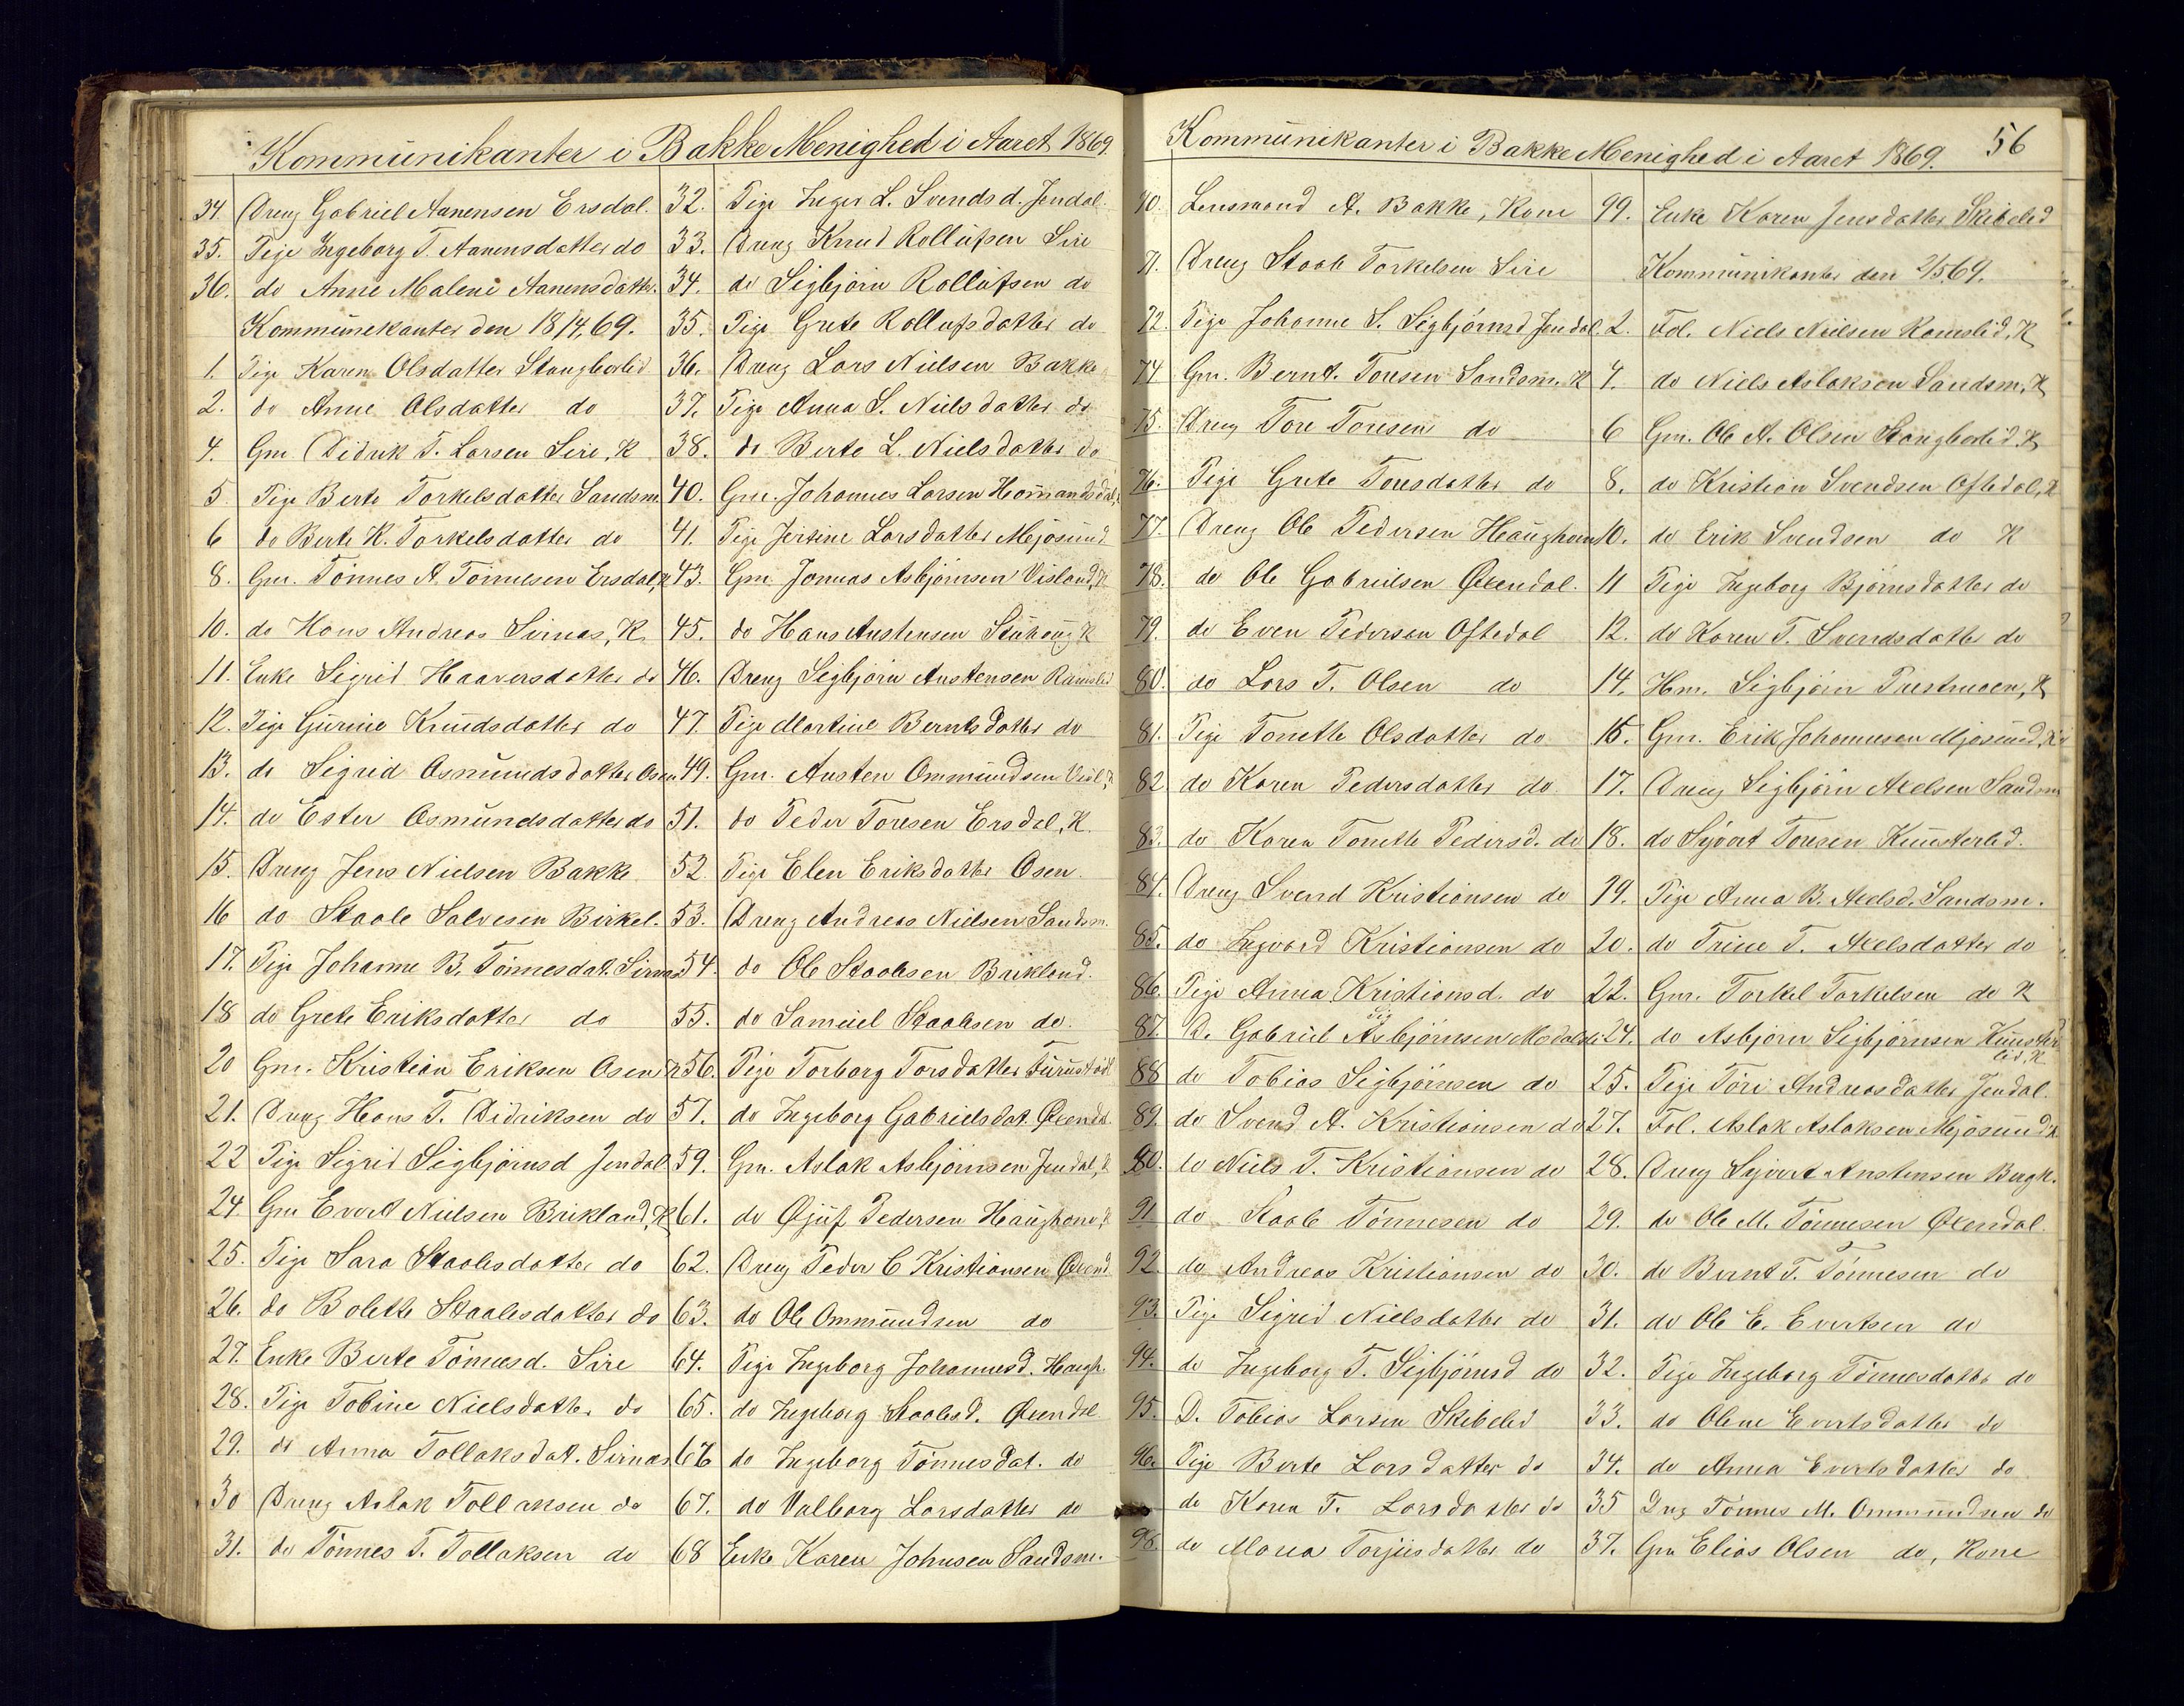 Kommunikanter i Bakke Menighed i Aaret 1869.
34. Dreng Gabriel Aanensen Ersdal.
35. Pige Ingeborg T. Aanensdatter do
36. do Anne Malene Aanensdatter.
Kommunekanter den 18/4.69.
1. Pige Karen Olsdatter Stangborlid
2. do Anne Olsdatter do
4. Gm Didrik T. Larsen Sire, K
5. Pige Berte Torkelsdatter Sandsm.
6 do Berte K. Torkelsdatter do
8. Gm. Tönnes A. Tönnesen Ersdal, K
10. do Hans Andreas Sirnas, K.
11. Enke Sigrid Haaversdatter do
12. Pige Gurine Knudsdatter do
13. do Sigrid Osmundsdatter Osen
14. do Ester Osmundsdatter do
15. Dreng Jens Nielsen Bakke
16 do Staale Salvesen Birkel.
17. Pige Johanne B. Tönnesdat. Sirnas
18 do Grete Eriksdatter do
20 Gm. Kristian Eriksen Osen K
21. Dreng Hans T. Didriksen do
22 Pige Sigrid Sigbjörnsd Jendal
24 Gm Evert Nielsen Brikland, K
25. Pige Sara Staalesdatter do
26. do Bolette Staalesdatter do
27. Enke Berte Tönnesd. Sire
28. Pige Tobine Nielsdatter do
29. do Anna Tollaksdat. Sirnas
30 Dreng Aslak Tollaksen do
31. do Tönnes T. Tollaksen do
32. Pige Inger L. Svendsd. Jendal.
33. Dreng Knud Rollufsen Sire
34. do Sigbjörn Rollufsen do
35. Pige Grete Rollufsdatter do
36. Dreng Lars Nielsen Bakke
37. Pige Anna S. Nielsdatter do
38. do Berte L. Nielsdatter do
40. Gm. Johannes Larsen Homandsdal,
41. Pige Jersine Larsdatter Mejosund
43. Gm. Jonnas Asbjörnsen Visland, K
45. do Hans Austensen Stuhaug K
46. Dreng Sigbjörn Austensen Ramslid
47. Pige Martine Berntsdatter do
49. Gm. Austen Ommundsen Visl, K
51. do Peder Toresen Ersdal, K.
52. Pige Elen Eriksdatter Osen.
53. Dreng Andreas Nielsen Sandsm.
54. do Ole Staalesen Brikland.
55. do Samuel Staalesen do.
56. Pige Torborg Torsdatter Furustöl
57. do Ingeborg Gabrielsdat. Øxendal.
59. Gm. Aslak Asbjörnsen Jendal, K
61. do Gjuf Pedersen Haughom, K
62. Dreng Peder C Kristiansen Øxend.
63. do Ole Ommundsen do
64. Pige Ingeborg Johannesd. Haugh.
65. do Ingeborg Staalesd. Øxendal
66 do Ingeborg Tönnesdat. do
67. do Valborg Larsdatter do
68 Enke Karen Johnsen Sandsm.
Kommunekanter i Bakke Menighed i Aaret 1869. 56
70. Lensmand A. Bakke, Kone
71. Dreng Staale Torkelsen Sire
72. Pige Johanne S. Sigbjörnsd Jendal.
74 Gm. Bernt. Toresen Sandsm. K
75. Dreng Tore Toresen do
76. Pige Grete Toresdatter do
77. Dreng Ole Pedersen Haughom
78. do Ole Gabrielsen Øxendal.
79. do Even Pedersen Oftedal
80. do Lars T. Olsen do
81. Pige Tonette Olsdatter do
82 do Karen Pedersdatter do
83. do Karen Tonette Pedersd. do
84. Dreng Svend Kristiansen do
85. do Ingvard Kristiansen do
86. Pige Anna Kristiansd. do
87. D. Gabriel Sigbjörnsen Modalsli
88 do Tobias Sigbjörnsen do
89. do Svend A. Kristiansen do
80. do Niels T. Kristiansen do
91 do Staale Tönnesen do
92. do Andreas Kristiansen do
93. Pige Sigrid Nielsdatter do
94. do Ingeborg T. Sigbjörnsd do
95. D. Tobias Larsen Skibelid
96. Pige Berte Larsdatter do
do Karen T. Larsdatter do
98. do Maria Torjusdatter do
99. Enke Karen Jensdatter Skibelid
Kommunikanter den 2/5.69.
2. Fol. Niels Nielsen Ramslid, K
4. do Niels Aslaksen Sandsm, K
6 Gm. Ole A. Olsen Stangborlid. K
8. do Kristian Svendsen Oftedal, K
10. do Erik Svendsen do K
11 Pige Ingeborg Björnsdatter do
12. do Karen T. Svendsdatter do
14. Hm. Sigbjörn Prestmoen, K
16. Gm. Erik Johannesen Mjosund, K
17. Dreng Sigbjörn Axelsen Sandsm
18. do Sjvert Toresen Kunsterlid.
19. Pige Anna B. Axelsd. Sandsm.
20. do Trine T. Axelsdatter do
22. Gm. Torkel Torkelsen do K
24. do Asbjörn Sigbjörnsen Kunster
lid. K
25. Pige Töre Andreasdatter Jendal.
27. Fol. Aslak Aslaksen Mjosund K
28. Dreng Sjvert Austensen Bergh.
29. do Ole M. Tönnesen Øxendal.
30. do Bernt T. Tönnesen do
31. do Ole E. Evertsen do
32. Pige Ingeborg Tönnesdatter do
33. do Olene Evertsdatter do
34. do Anna Evertsdatter do
35 Dng Tönnes M. Ommundsen do
37. Gm Elias Olsen do, Kone